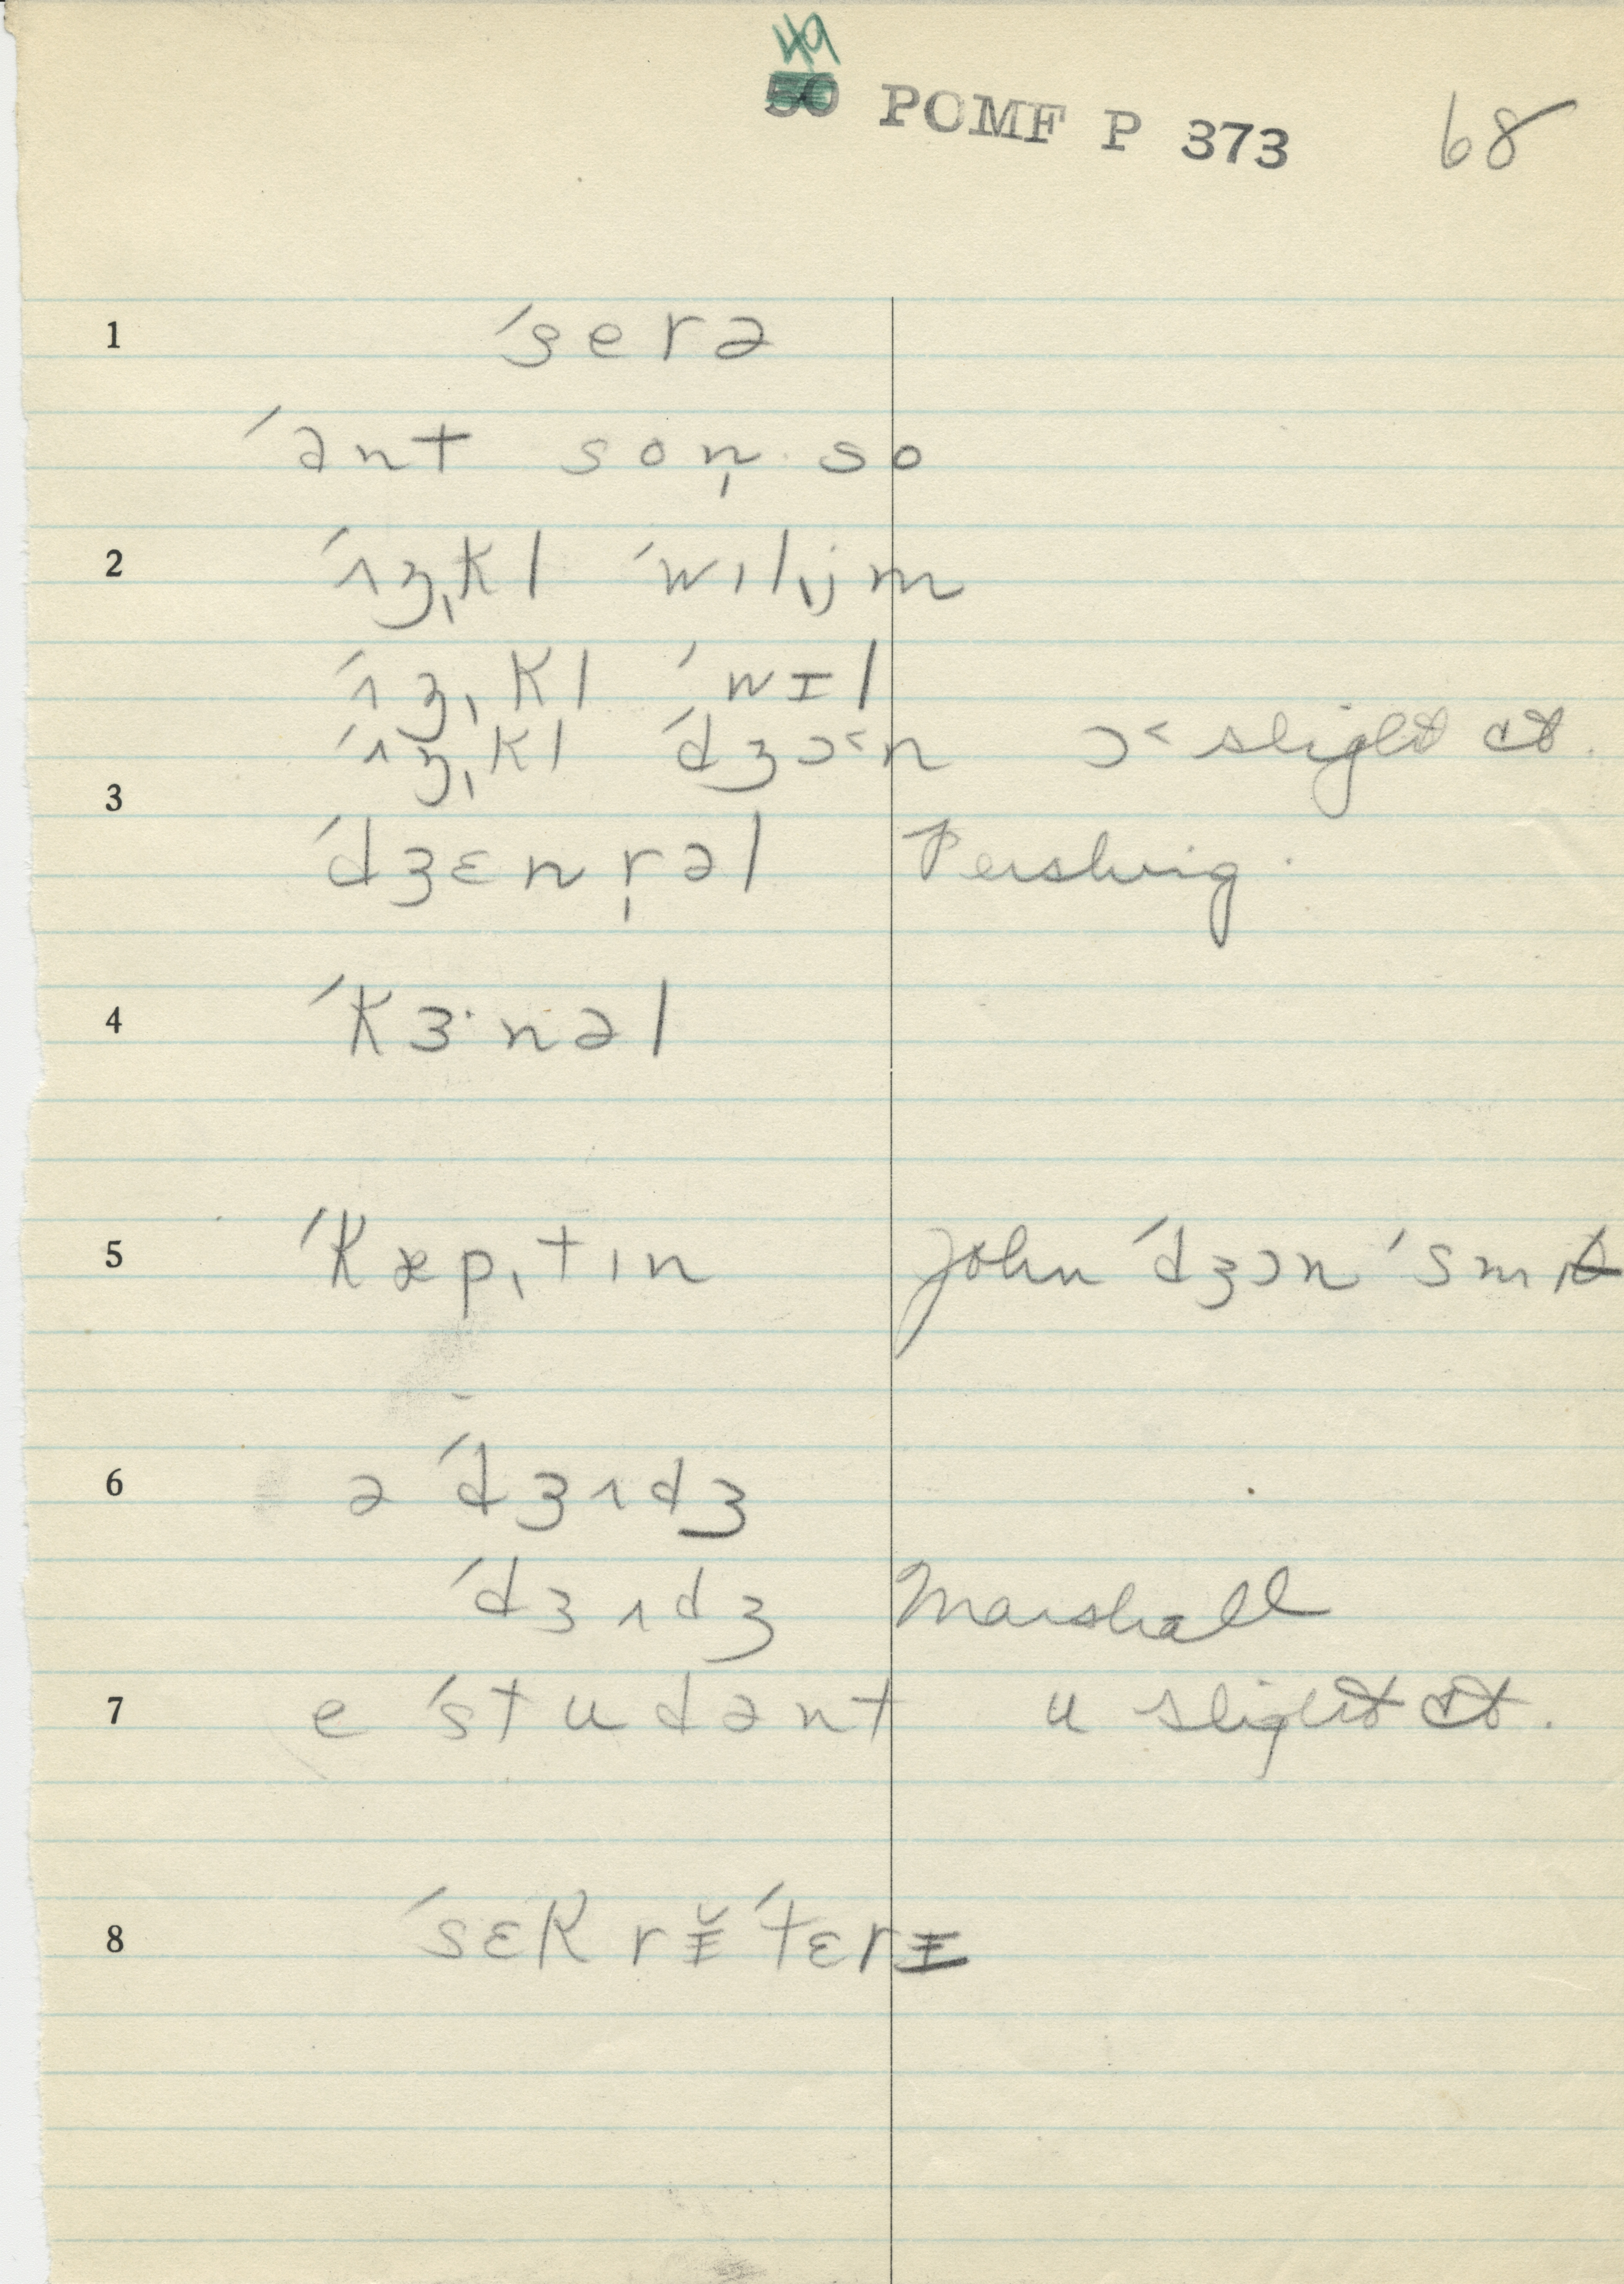 49
50 POMF P 373 68
1 ˈserə
ˈənt son̩ so
2 ˈʌʒ̩kl ˈwɪlɪ̩jm
ˈʌʒ̩kl ˈwɪl
ˈʌʒ̩kl ˈdʒɔ˂n ɔ˂ slight ct.
3 ˈdʒɛnr̩əl Pershing.
4 ˈkɜ·nəl
5 ˈkæpˌtɪn John ˈdʒɔn ˈsmɪ
6 ə ˈdʒʌdʒ
ˈdʒʌdʒ Marshall
7 e ˈstudənt u slight ct.
8 ˈsɛkrɪ̆ˈtɛrɪ